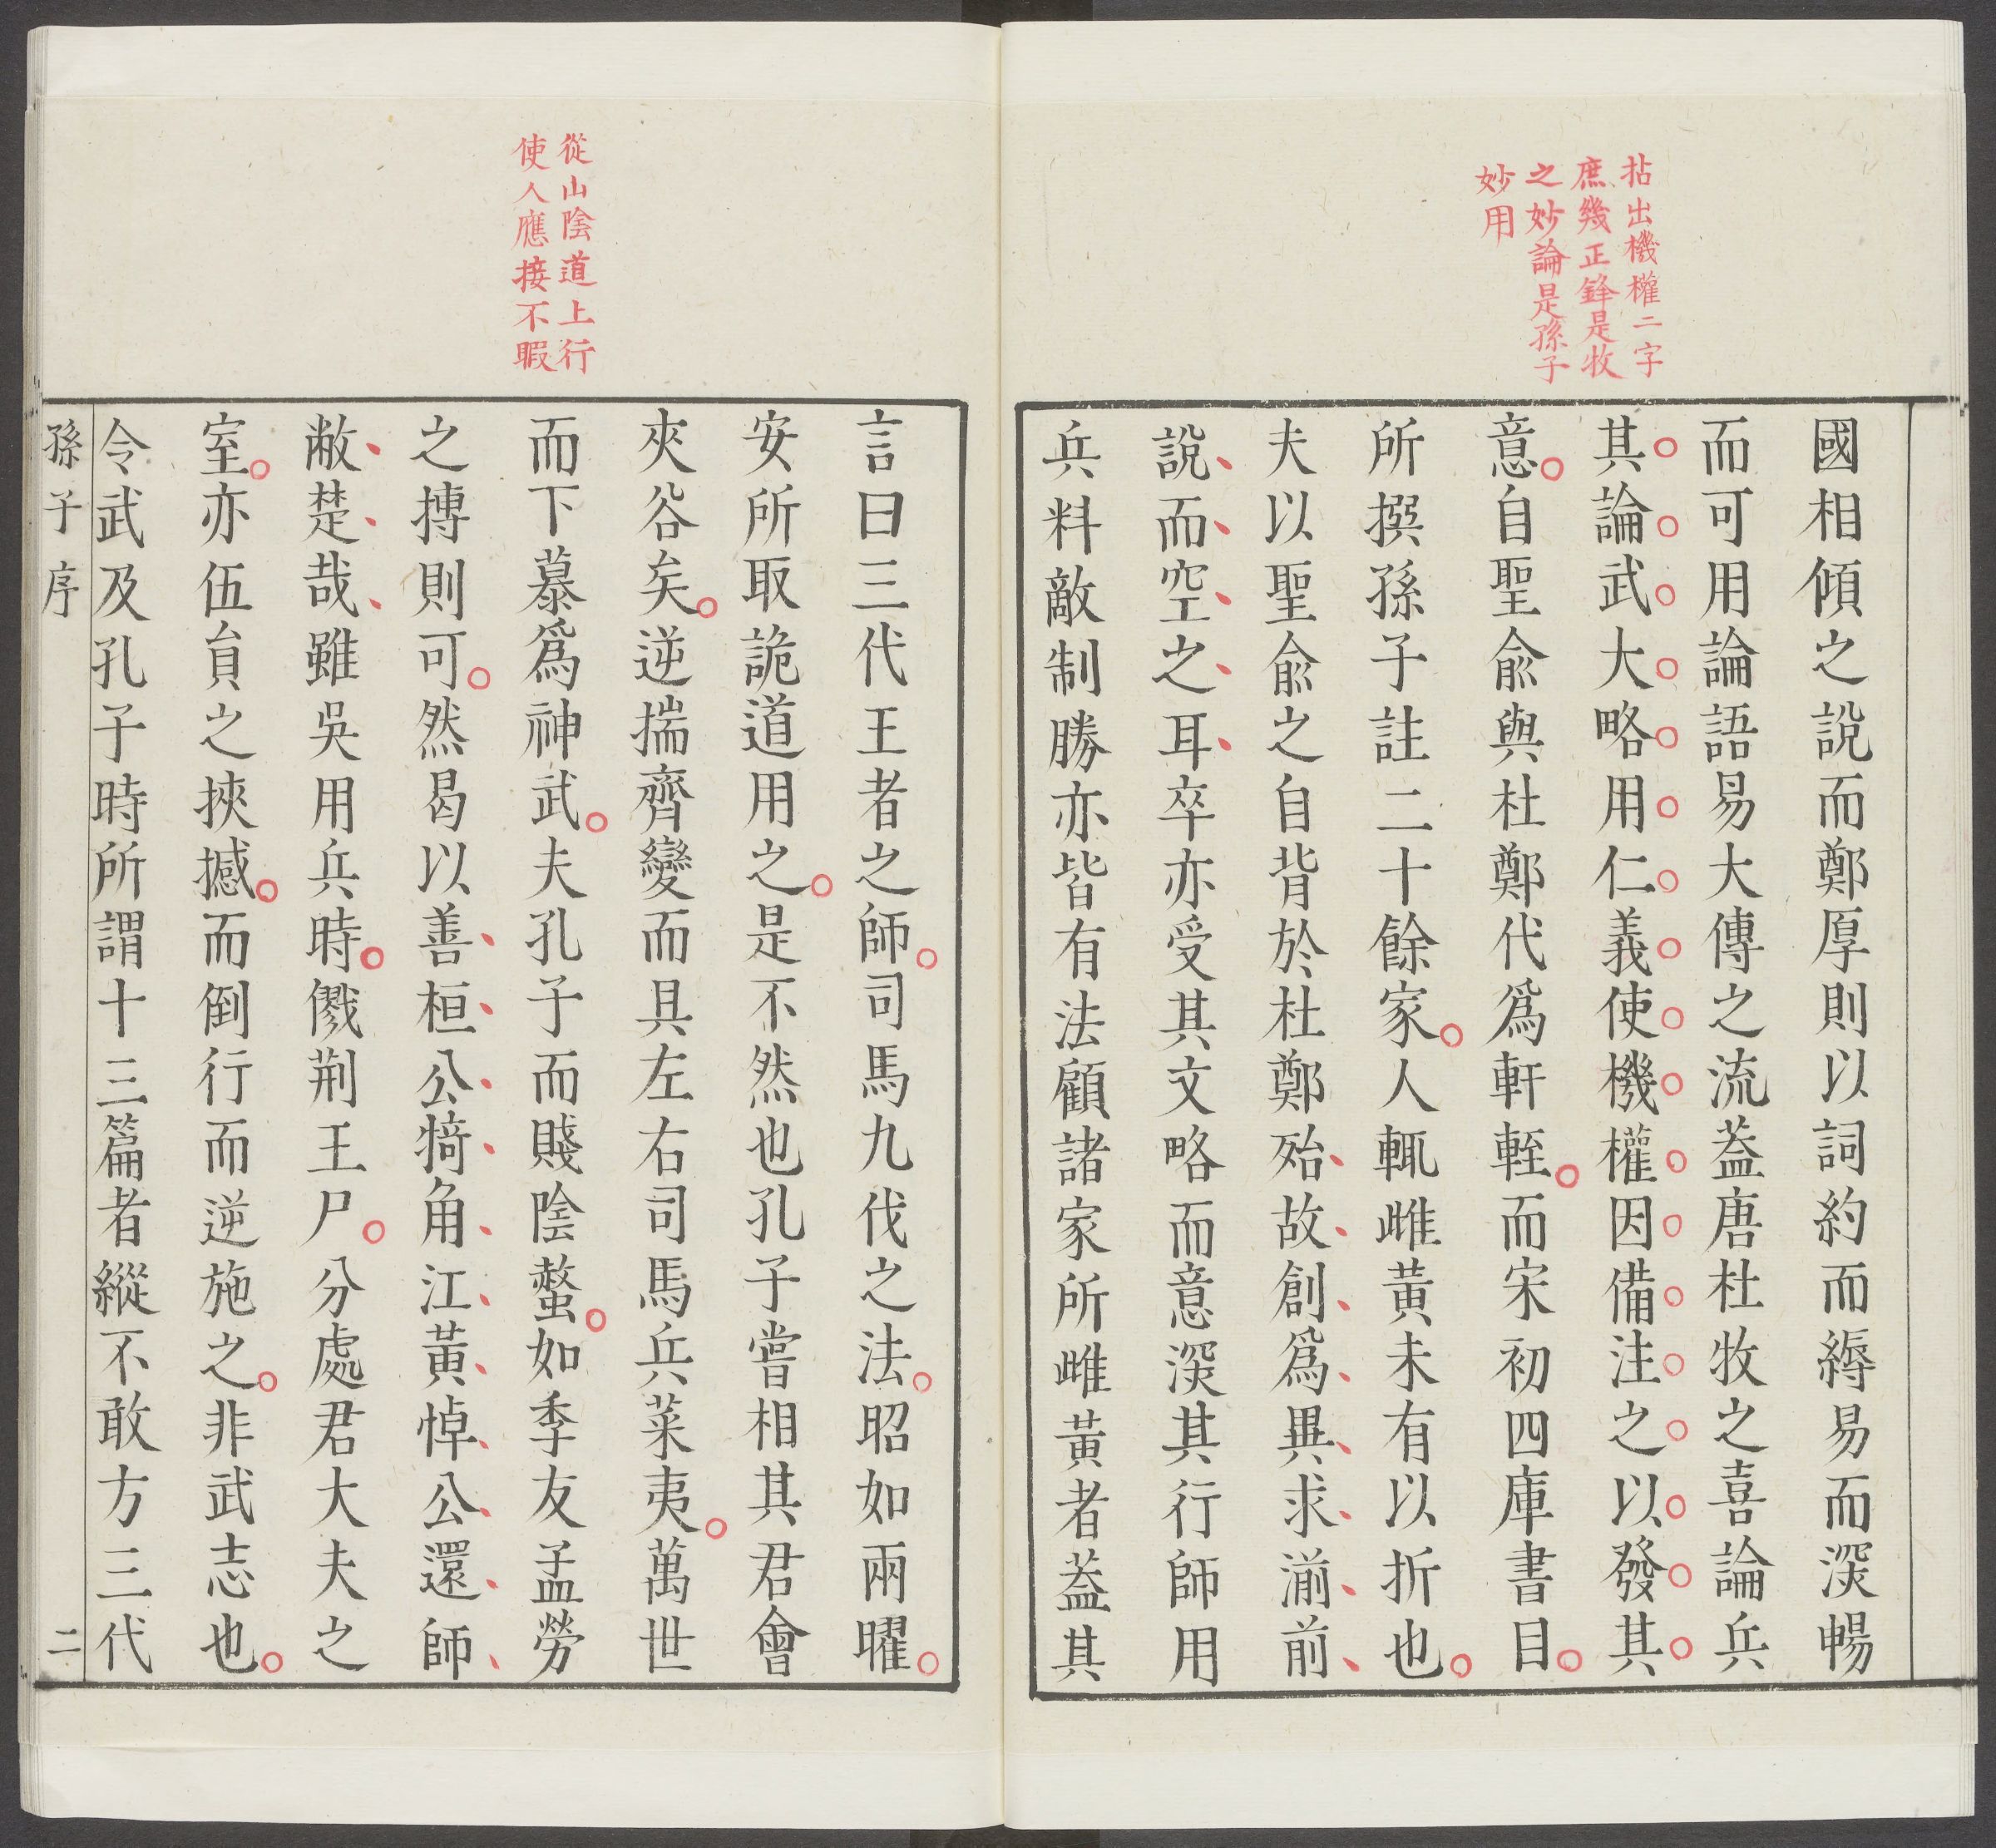 拈出機權二字
庶幾正鋒是牧
之妙論是孫子
妙用
國相傾之說而鄭厚則以詞約而縟易而深暢
而可用論語易大傳之流葢唐杜牧之喜論兵
其論武大略用仁義使機權因備注之以發其
意自聖俞與杜鄭代爲軒輊而宋初四庫書目
所撰孫子註二十餘家人輒雌黃未有以折也
夫以聖俞之自背於杜鄭殆故創爲異求湔前
說而空之耳卒亦受其文略而意深其行師用
兵料敵制勝亦皆有法顧諸家所雌黃者葢其
從山陰道上行
使人應接不暇
言曰三代王者之師司馬九伐之法昭如兩曜
安所取詭道用之是不然也孔子嘗相其君會
夾谷矣逆揣齊變而具左右司馬兵萊夷萬世
而下慕爲神武夫孔子而賤陰螫如季友孟勞
之摶則可然曷以善桓公犄角江黃悼公還師
敝楚哉雖吳用兵時戮荆王尸分處君大夫之
室亦伍員之挾撼而倒行而逆施之非武志也
令武及孔子時所謂十三篇者縱不敢方三代
孫子序 二